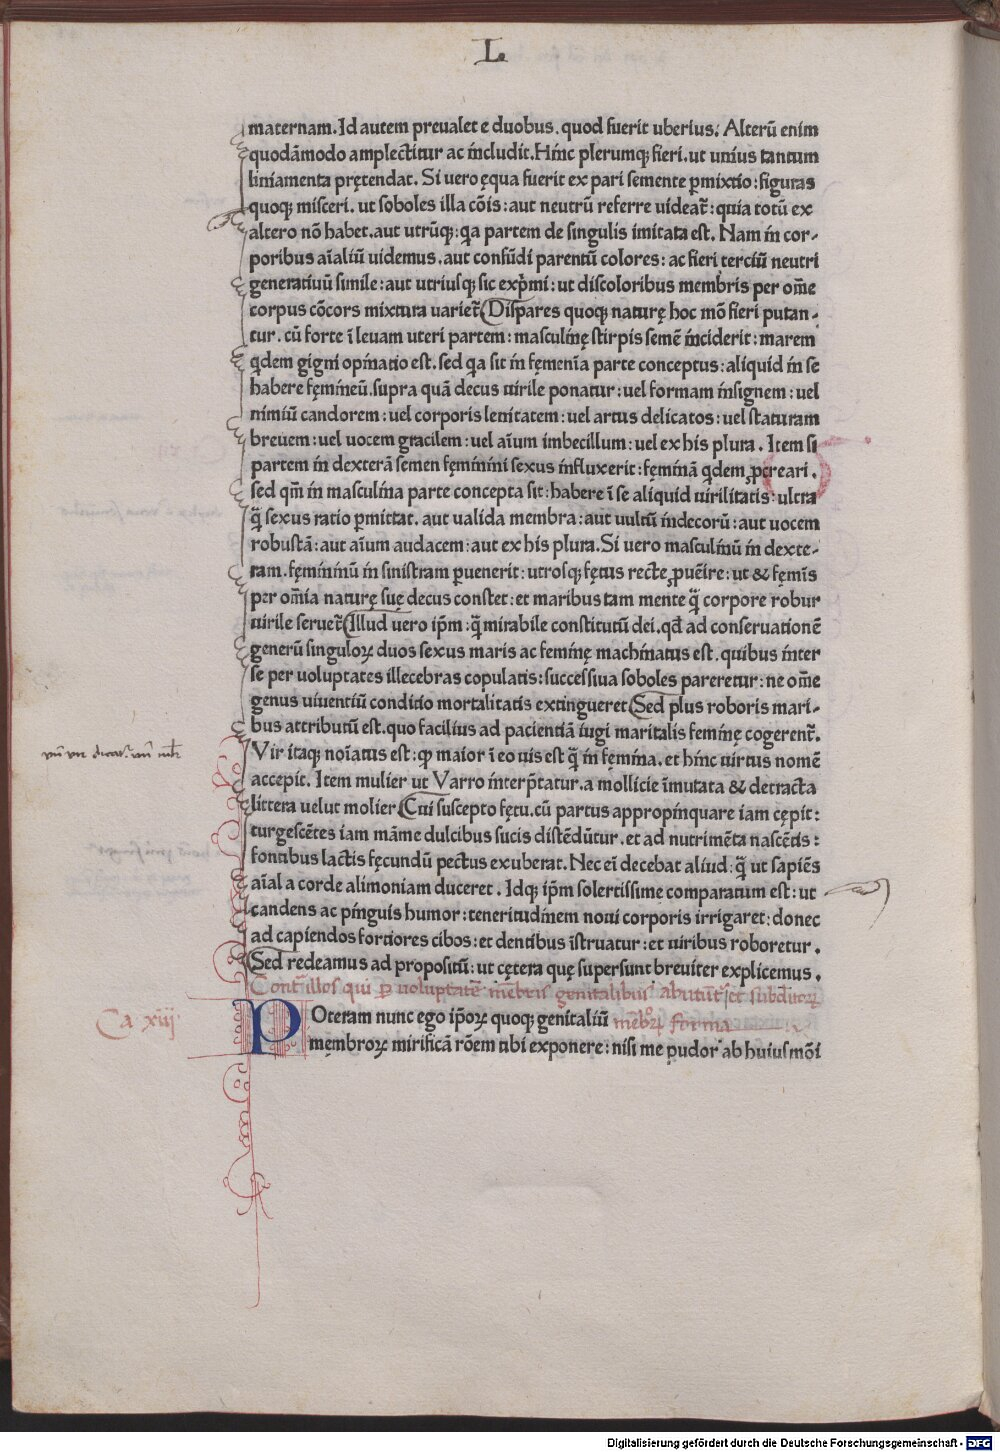 L
maternam. Id autem preualet e duobus. quod fuerit uberius. Alterū enim
quodāmodo amplectitur ac includit. Hinc plerumqꝫ fieri. ut unius tantum
liniamenta prętendat. Si uero ęqua fuerit ex pari semente ꝑmixtio: figuras
quoqꝫ misceri. ut soboles illa cōis: aut neutrū referre uideat̄: quia totū ex
altero nō habet. aut utrūqꝫ: qa partem de singulis imitata est. Nam in cor-
poribus aīaliū uidemus. aut confūdi parentū colores: ac fieri terciū neutri
generatiuū simile: aut utriusqꝫ sic exp̄mi: ut discoloribus membris per om̄e
corpus cōcors mixtura uariet̄. Dispares quoqꝫ naturę hoc mō fieri putan-
tur. cū forte ī leuam uteri partem: masculinę stirpis semē inciderit: marem
qdem gigni opinatio est. sed qa sit in fęmenīa parte conceptus: aliquid in se
habere fęmineū. supra quā decus uirile ponatur: uel formam insignem: uel
nimiū candorem: uel corporis lenitatem: uel artus delicatos: uel staturam
breuem: uel uocem gracilem: uel aīum imbecillum: uel ex his plura. Item si
partem in dexterā semen fęminini sexus influxerit: fęminā qdem ꝓcreari.
sed qm̄ in masculina parte concepta sit: habere ī se aliquid uirilitatis: ultra
q̄ sexus ratio ꝑmittat. aut ualida membra: aut uultū indecorū: aut uocem
robustā: aut aīum audacem: aut ex his plura. Si uero masculinū in dexte-
ram. fęmininū in sinistram ꝑuenerit: utrosqꝫ fętus recte ꝓuēire: ut & fęmīs
per om̄ia naturę suę decus constet: et maribus tam mente q̄ corpore robur
uirile seruet̄. Illud uero ip̄m: q̄ mirabile constitutū dei. qđ ad conseruationē
generū singuloꝝ duos sexus maris ac feminę machinatus est. quibus inter
se per uoluptates illecebras copulatis: successiua soboles pareretur: ne om̄e
genus uiuentiū conditio mortalitatis extingueret. Sed plus roboris mari-
bus attributū est. quo facilius ad pacientiā iugi maritalis feminę cogerent̄.
Vir itaqꝫ noīatus est: ꝙ maior ī eo uis est q̄ in femina. et hinc uirtus nomē
accepit. Item mulier ut Varro interp̄tatur. a mollicie īmutata & detracta
littera uelut molier. Cui suscepto fętu. cū partus appropinquare iam cępit:
turgescētes iam māme dulcibus sucis distēdūtur. et ad nutrimēta nascētis:
fontibus lactis fęcundū pectus exuberat. Nec eī decebat aliud: q̄ ut sapiēs
aīal a corde alimoniam duceret. Idqꝫ ip̄m solertissime comparatum est: ut
candens ac pinguis humor: teneritudinem noui corporis irrigaret: donec
ad capiendos fortiores cibos: et dentibus īstruatur: et uiribus roboretur.
Sed redeamus ad propositū: ut cętera quę supersunt breuiter explicemus.
Cont̄ illos qui ꝑ uoluptatē mēbris genitalibus abutūt̄ et
Ca xiij
POteram nunc ego ip̄oꝝ quoqꝫ genitaliū mēbroꝝ forma
męmbroꝝ mirificā rōem tibi exponere: nisi me pudor ab huiusmōi
Digitalisierung gefördert durch die Deutsche Forschungsgemeinschaft - DFG